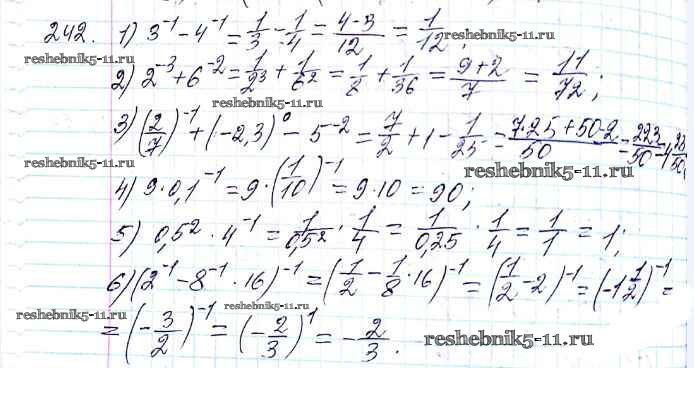 242. 1) 3⁻¹ - 4⁻¹ = 1/3 - 1/4 = (4-3)/12 = 1/12;
reshebnik5-11.ru
reshebnik5-11.ru
2) 2⁻³ + 6⁻² = 1/2³ + 1/6² = 1/8 + 1/36 = (9+2)/7 = 11/72;
reshebnik5-11.ru
3) (2/7)⁻¹ + (-2,3)⁰ - 5⁻² = 7/2 + 1 - 1/25 = (7·25+50-2)/50 = 223/50 = 4 23/50
reshebnik5-11.ru
4) 9·0,1⁻¹ = 9·(1/10)⁻¹ = 9·10 = 90;
5) 0,5² · 4⁻¹ = 1/0,5² · 1/4 = 1/0,25 · 1/4 = 1/1 = 1;
6) (2⁻¹ - 8⁻¹ · 16)⁻¹ = (1/2 - 1/8 · 16)⁻¹ = (1/2 - 2)⁻¹ = (-1 1/2)⁻¹ =
reshebnik5-11.ru
reshebnik5-11.ru
= (-3/2)⁻¹ = (-2/3)¹ = -2/3.
reshebnik5-11.ru